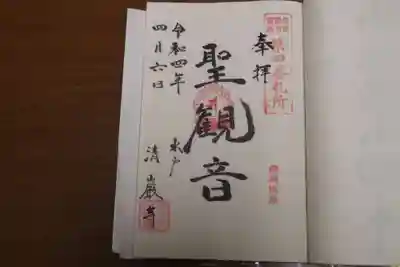 奉拝
聖観音
水戸
清巌寺
令和四年
四月六日